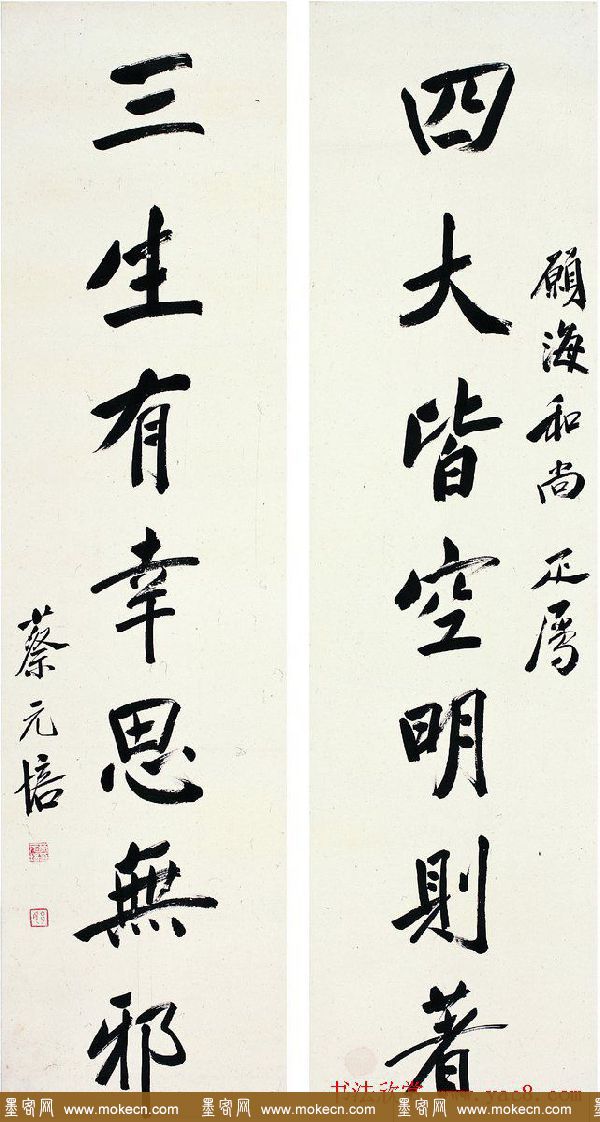 願海和尚 正属
四大皆空明則著
三生有幸思無邪
蔡元培
书法欣赏 www.yac8.com
墨客网 www.mokecn.com 墨客网 www.mokecn.com 墨客网 www.mokecn.com